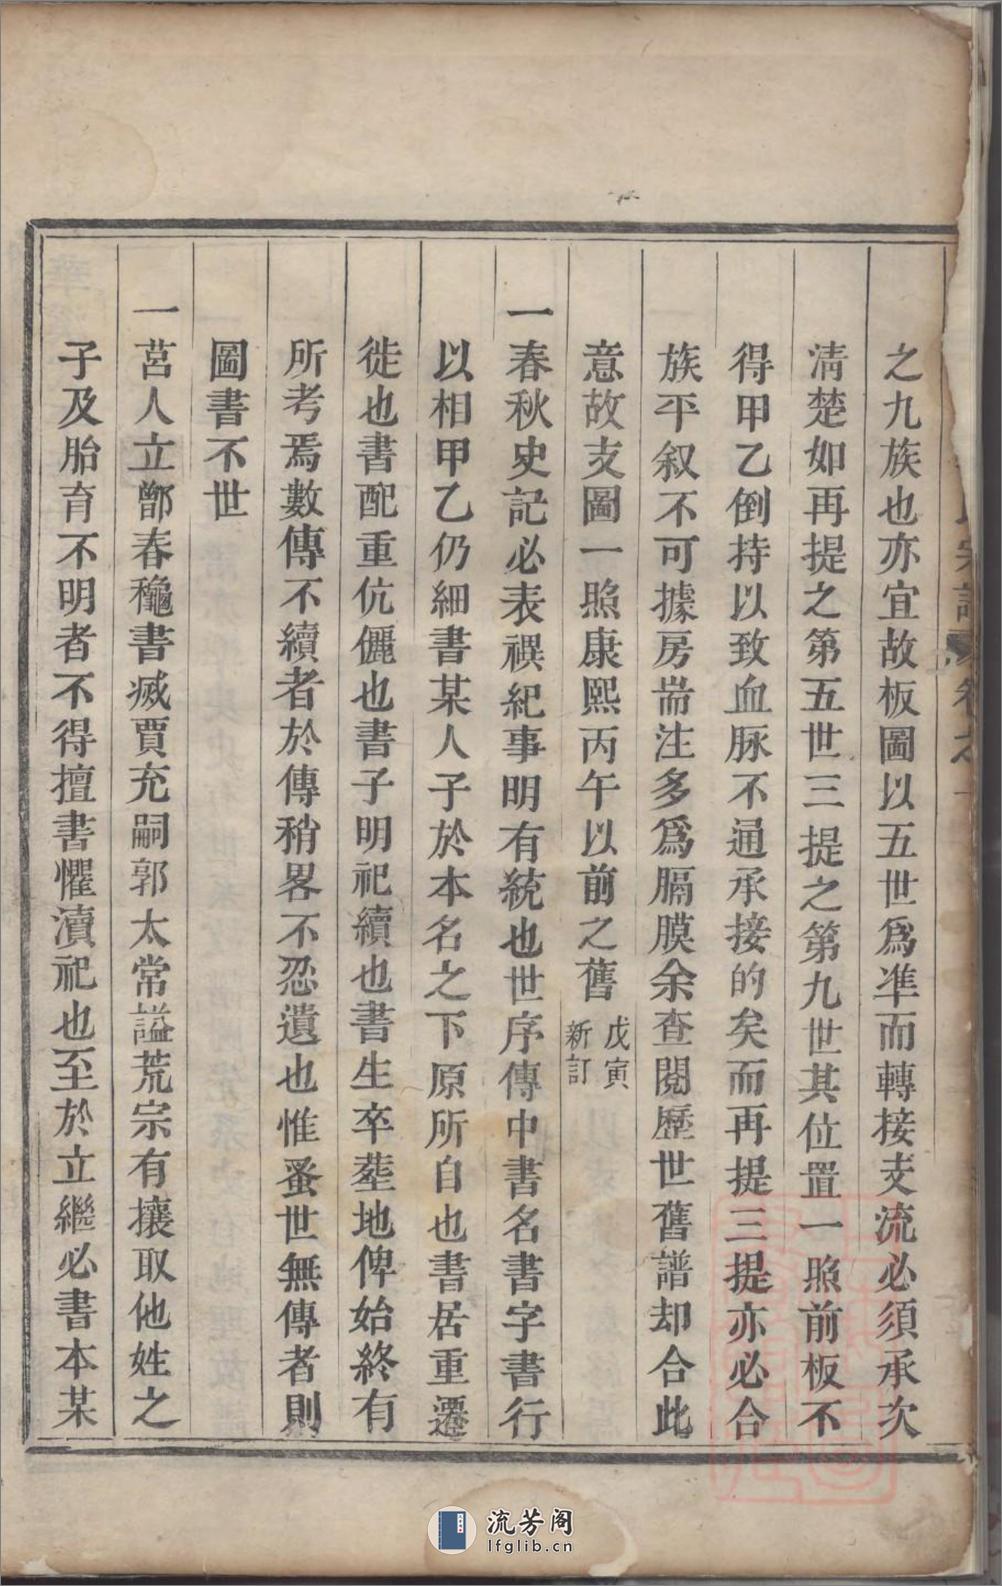 之九族也亦宜故板圖以五世爲準而轉接支流必須承次
淸楚如再提之第五世三提之第九世其位置一照前板不
得甲乙倒持以致血脉不通承接的矣而再提三提亦必合
族平叙不可據房耑注多爲膈膜余查閱歷世舊譜却合此
意故支圖一照康熙丙午以前之舊戊寅新訂
一春秋史記必表禩紀事明有統也世序傳中書名書字書行
以相甲乙仍細書某人子於本名之下原所自也書居重遷
徙也書配重伉儷也書子明祀續也書生卒塟地俾始終有
所考焉數傳不續者於傳稍畧不忍遺也惟蚤世無傳者則
圖書不世
一莒人立鄫春穐書㓕賈充嗣郭太常謚荒宗有攘取他姓之
子及胎育不明者不得擅書懼瀆祀也至於立繼必書本某
流芳阁
lfglib.cn